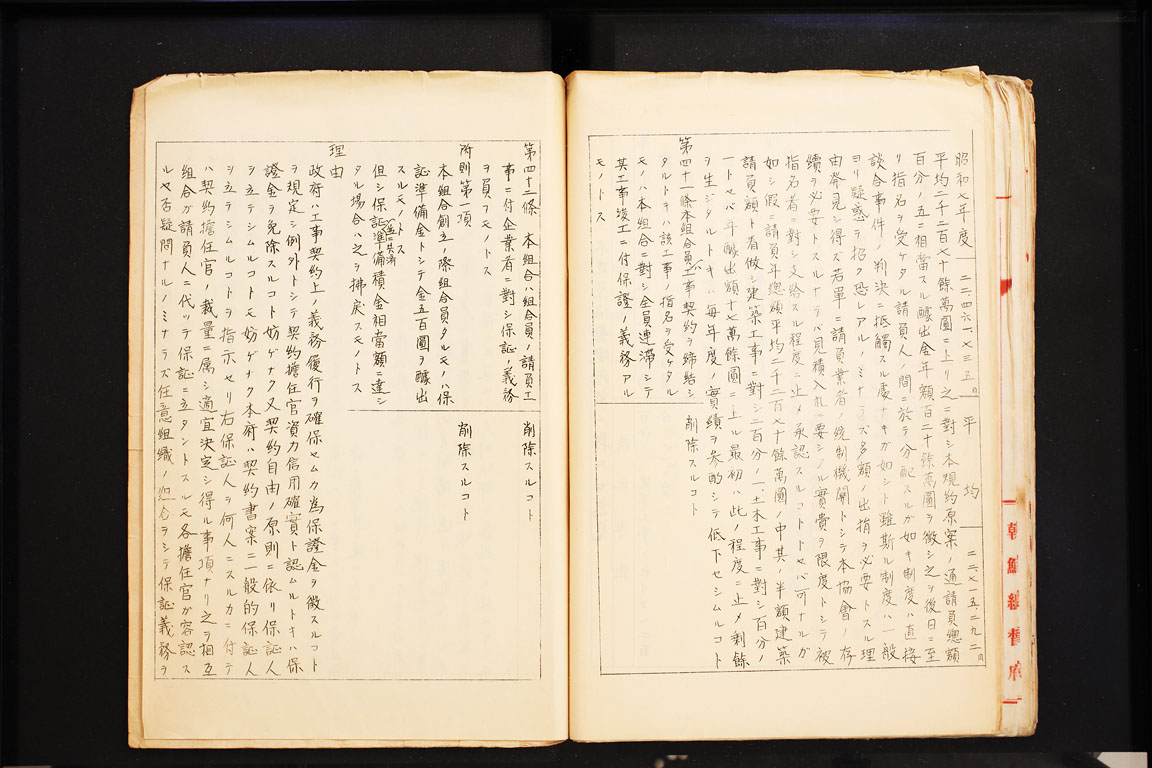 昭和七年度 二二、四六一、七三五円 平均 二二、七一五、二九二円
平均二千二百七十餘萬圓ニ上リ之ニ對シ本規約原案ノ通請員總額
百分ノ五ニ相當スル醵出金年額百二十餘萬圓ヲ徴シ之ヲ後日ニ至
リ指名ヲ受ケタル請員人ノ間ニ於テ分配スルガ如キ制度ハ直接
談合事件ノ判決ニ抵觸スル處ナキガ如シト雖斯ル制度ハ一般
ヨリ疑惑ヲ招ク恐レアルノミナラズ多額ノ出捐ヲ必要トスル理
由發見シ得ズ若單ニ請員業者ノ統制機關トシテ本協會ノ存
續ヲ必要トスルナラバ見積入札ニ要シタル實費ヲ限度トシテ被
指名者ニ對シ支給スル程度ニ止メ承認スルコトトセバ可ナルガ
如シ假ニ請員年總額平均二千二百七十餘萬圓ノ中其ノ半額建築
請員額ト看做シ建築工事ニ對シ二百分ノ一土木工事ニ對シ百分ノ
一トセバ年醵出額十七萬餘圓ニ上ル最初ハ此ノ程度ニ止メ剰餘
ヲ生ジタルトキハ毎年度ノ實績ヲ参酌シテ低下セシムルコト
第四十一條本組合員ガ工事契約ヲ締結シ 削除スルコト
タルトキハ該工事ノ指名ヲ受ケタル
モノハ本組合ニ對シ全員連滞シテ
其工事竣工ニ付保證ノ義務アル
モノトス
第四十二條 本組合ハ組合員ノ請員工 削除スルコト
事ニ付企業者ニ對シ保証ノ義務
ヲ員フモノトス
附則第一項 削除スルコト
本組合創立ノ際組合員タルモノハ保
証準備金トシテ金五百圓ヲ醵出
スルモノトス
但シ保証準備積金相當額ニ達シ
タル場合ハ之ヲ拂戻スモノトス
理由
政府ハ工事契約上ノ義務履行ヲ確保セムガ為保證金ヲ徴スルコト
ヲ規定シ例外トシテ契約擔任官資力信用確實ト認ムルトキハ保
證金ヲ免除スルコト妨ゲナク又契約自由ノ原則ニ依リ保証人
ヲ立テシムルコトモ妨ゲナク本府ハ契約書案ニ一般的保証人
ヲ立テシムルコトヲ指示セリ右保証人ヲ何人ニスルカニ付テ
ハ契約擔任官ノ裁量ニ属シ適宜決定シ得ル事項ナリ之ヲ相互
組合ガ請員人ニ代ッテ保証ニ立タントスルモ各擔任官ガ容認ス
ルヤ否疑問ナルノミナラズ任意組織ノ組合ヲシテ保証義務ヲ
朝鮮總督府